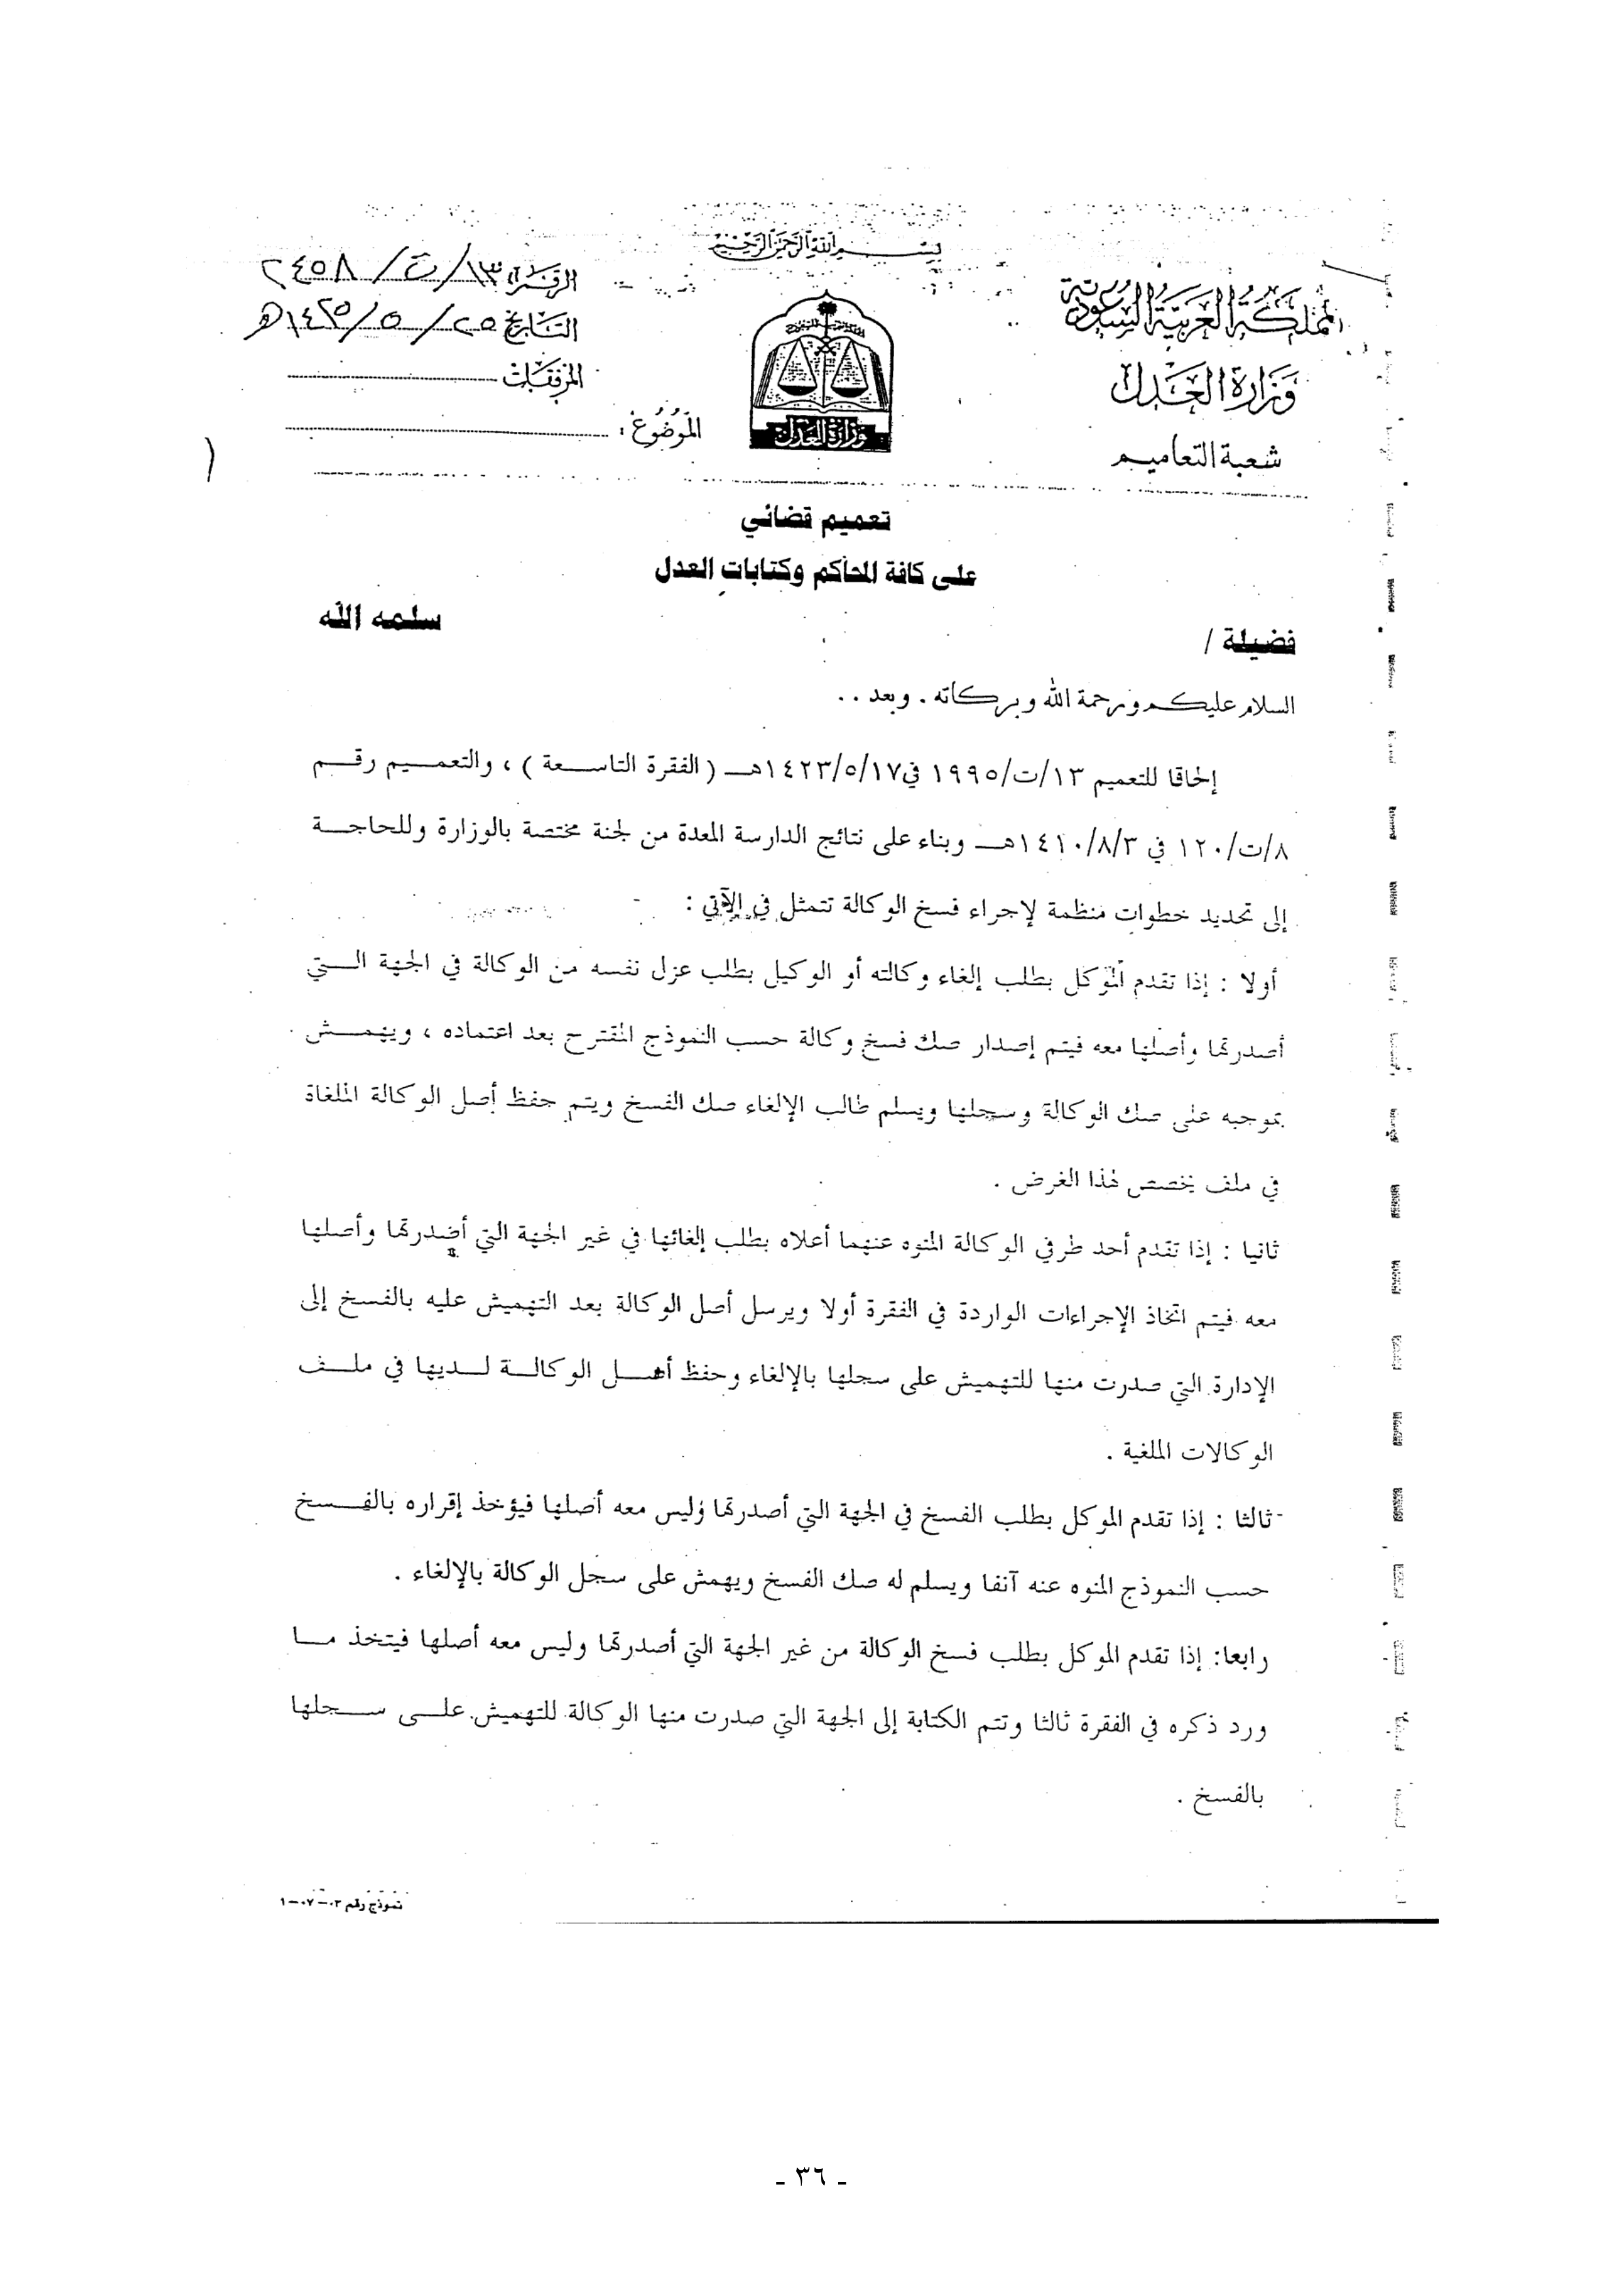 بسم الله الرحمن الرحيم
المملكة العربية السعودية
وزارة العدل
شعبة التعاميم
وزارة العدل
الرقم: ١٣/ت/٢٤٥٨
التاريخ ٢٥/٥/١٤٢٥هـ
المرفقات
الموضوع:
تعميم قضائي
على كافة المحاكم وكتابات العدل
فضيلة / سلمه الله
السلام عليكم ورحمة الله وبركاته . وبعد ..
إلحاقا للتعميم ١٣/ت/١٩٩٥ في ١٤٢٣/٥/١٧هـ ( الفقرة التاسعة ) ، والتعميم رقم
٨/ت/١٢٠ في ١٤١٠/٨/٣هـ وبناء على نتائج الدارسة المعدة من لجنة مختصة بالوزارة وللحاجة
إلى تحديد خطوات منظمة لإجراء فسخ الوكالة تتمثل في الآتي :
أولا : إذا تقدم الموكل بطلب إلغاء وكالته أو الوكيل بطلب عزل نفسه من الوكالة في الجهة التي
أصدرتها وأصلها معه فيتم إصدار صك فسخ وكالة حسب النموذج المقترح بعد اعتماده ، ويهمش
بموجبه على صك الوكالة وسجلها ويسلم طالب الإلغاء صك الفسخ ويتم حفظ أصل الوكالة الملغاة
في ملف يخصص لهذا الغرض .
ثانيا : إذا تقدم أحد طرفي الوكالة المنوه عنهما أعلاه بطلب إلغائها في غير الجهة التي أصدرتها وأصلها
معه فيتم اتخاذ الإجراءات الواردة في الفقرة أولا ويرسل أصل الوكالة بعد التهميش عليه بالفسخ إلى
الإدارة التي صدرت منها للتهميش على سجلها بالإلغاء وحفظ أصل الوكالة لديها في ملف
الوكالات الملغية .
ثالثا : إذا تقدم الموكل بطلب الفسخ في الجهة التي أصدرتها وليس معه أصلها فيؤخذ إقراره بالفسخ
حسب النموذج المنوه عنه آنفا ويسلم له صك الفسخ ويهمش على سجل الوكالة بالإلغاء .
رابعا: إذا تقدم الموكل بطلب فسخ الوكالة من غير الجهة التي أصدرتها وليس معه أصلها فيتخذ ما
ورد ذكره في الفقرة ثالثا وتتم الكتابة إلى الجهة التي صدرت منها الوكالة للتهميش على سجلها
بالفسخ .
نموذج رقم ٠٣-٠٧-١
- ٣٦ -